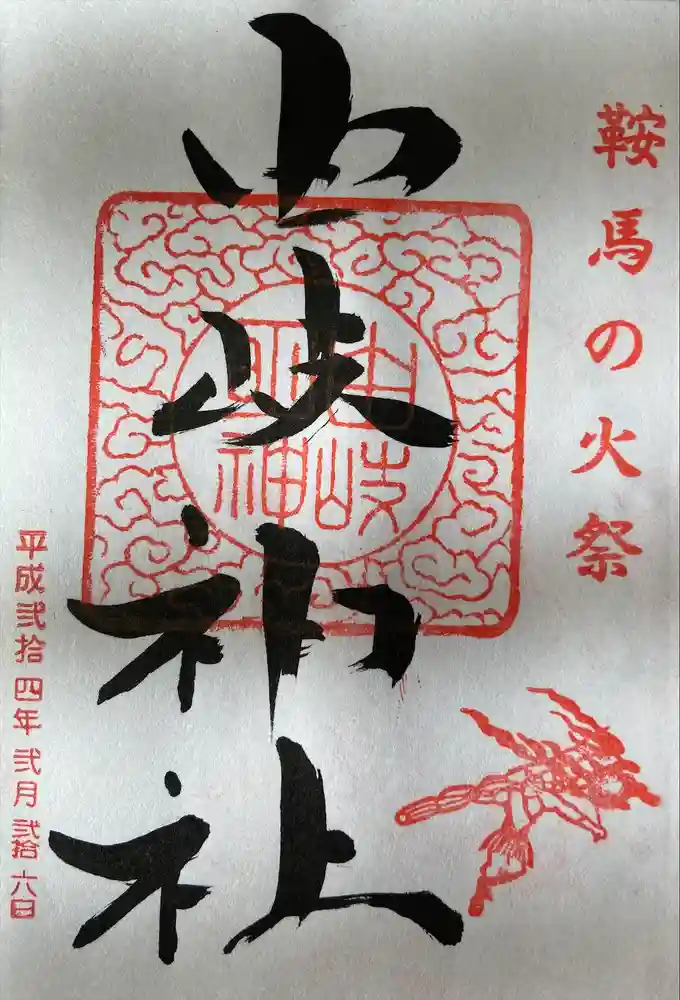 鞍馬の火祭
由岐神社
由岐
神璽
平成弐拾四年弐月弐拾六日